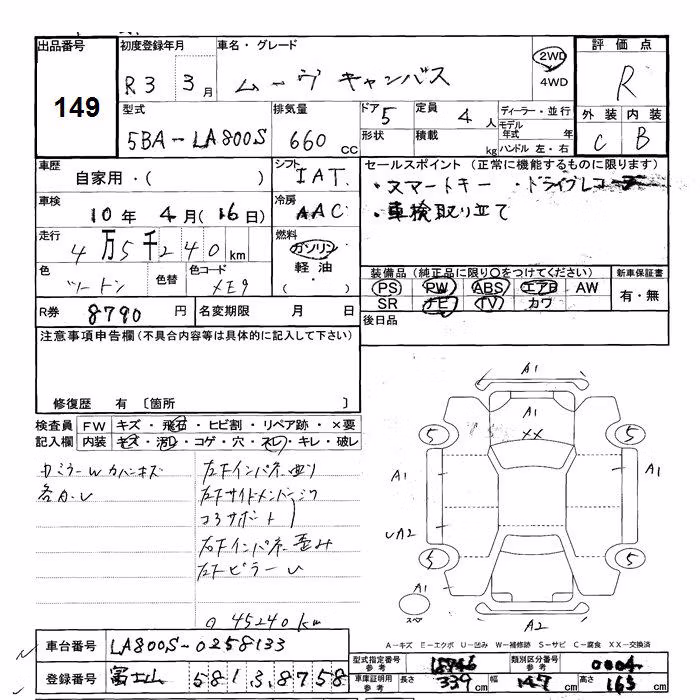 出品番号 初度登録年月 車名・グレード 評価点
149
R3 3月 ムーヴキャンバス 2WD 4WD R
型式 排気量 ドア 5 定員 4人 ディーラー・並行 外装 内装
5BA-LA800S 660cc 形状 積載 kg モデル年式 年 C B
ハンドル 左・右
車歴 自家用・( ) シフト IAT
セールスポイント (正常に機能するものに限ります)
・スマートキー ・ドライブレコ
・車検取り立て
車検 10年 4月(16日) 冷房 AAC
走行 4万5千240km 燃料 ガソリン 軽油・( )
色 ツートン 色替 色コード XE9
装備品 (純正品に限り○をつけてください) 新車保証書
PS PW ABS エアB AW 有・無
SR ナビ TV カワ
R券 8790円 名変期限 月 日 後日品
注意事項申告欄(不具合内容等は具体的に記入して下さい)
修復歴 有 〔箇所 〕
検査員記入欄 FW キズ・飛石・ヒビ割・リペア跡・×要
内装 キズ・汚れ・コゲ・穴・スレ・キレ・破レ
左下インパネ曲り
各A・U
左下サイドメンバー
コアサポート
右下インパネ歪み
左下ピラーU
45240km
A1
A1
XX
5 5
A1 A1
UA2
5 5
A1
スペア
A2
A-キズ E-エクボ U-凹み W-補修跡 S-サビ C-腐食 XX-交換済
車台番号 LA800S-0258133
登録番号 富士山 581 3 8758
型式指定番号 参考 18746 類別区分番号 参考 0004
車庫証明用 参考 長さ 339cm 幅 147cm 高さ 165cm